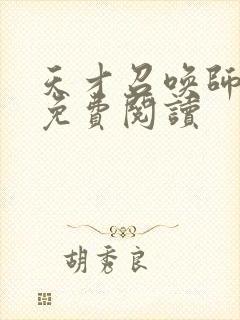 天才召唤師
免費閱讀
胡秀良